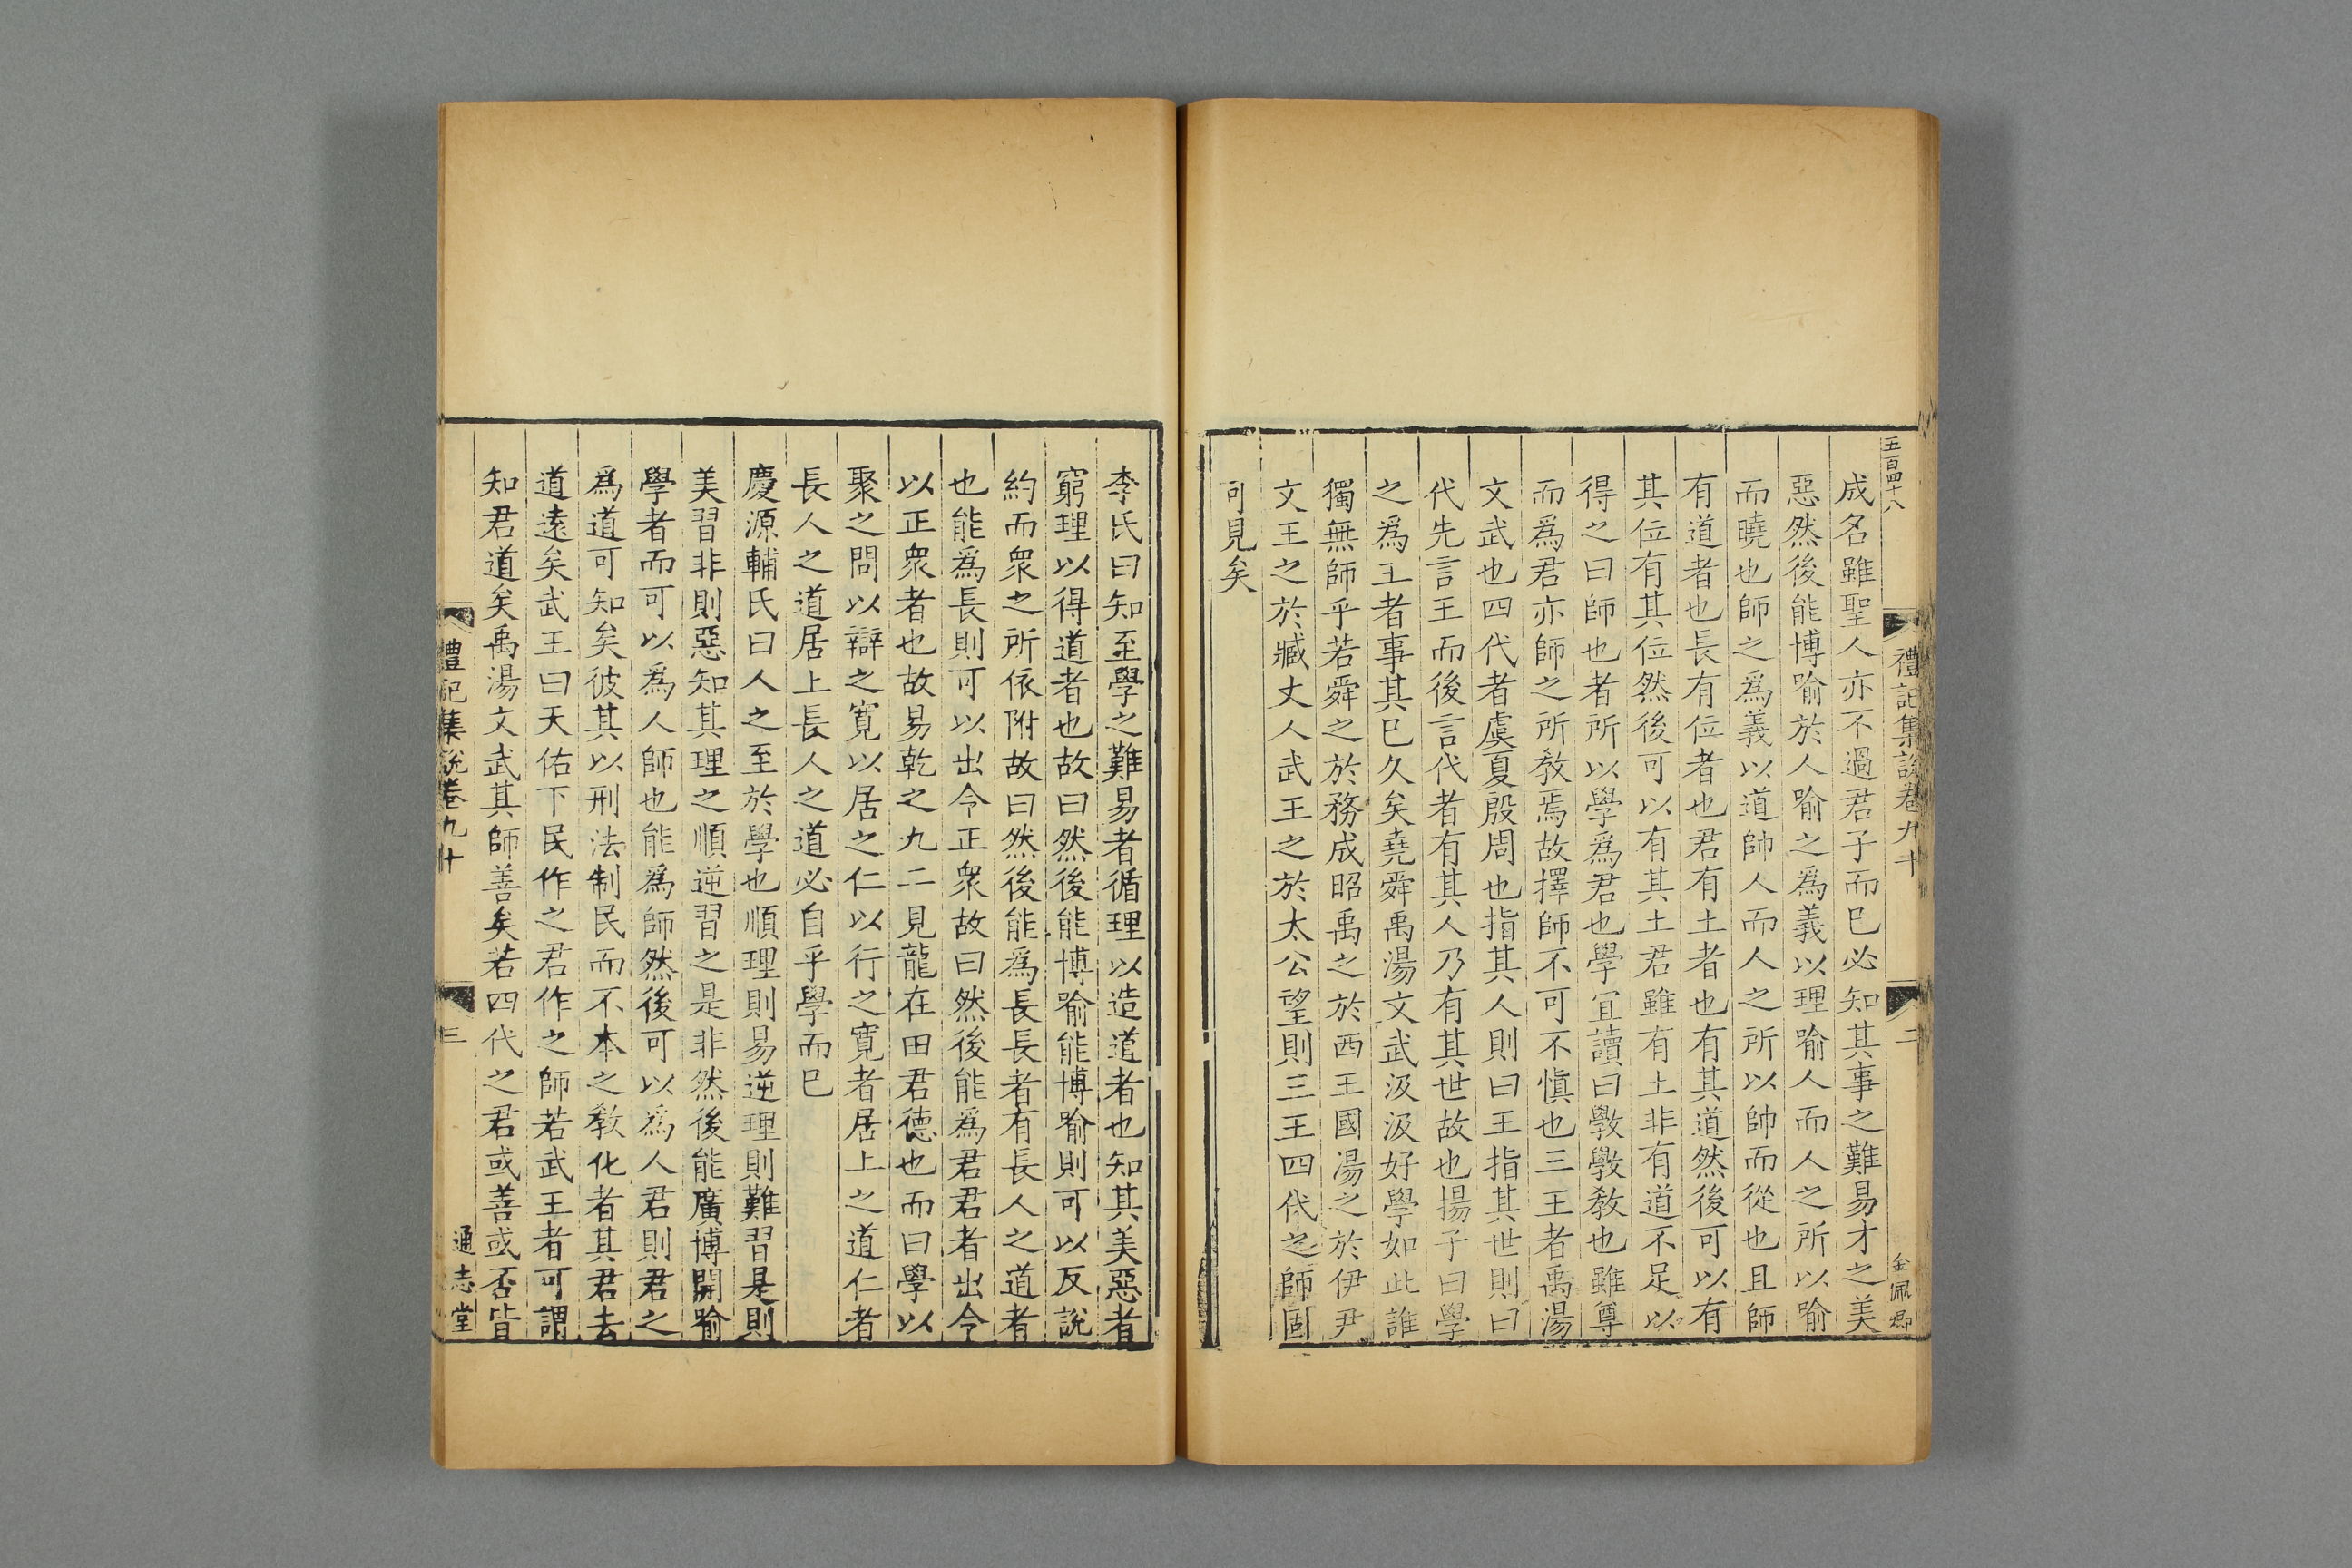 五百四十八
禮記集說卷九十
二
金佩卿
成名雖聖人亦不過君子而已必知其事之難易才之美
惡然後能博喻於人喻之爲義以理喻人而人之所以喻
而曉也師之爲義以道帥人而人之所以帥而從也且師
有道者也長有位者也君有土者也有其道然後可以有
其位有其位然後可以有其土君雖有土非有道不足以
得之曰師也者所以學爲君也學宜讀曰斆斆教也雖尊
而爲君亦師之所教焉故擇師不可不愼也三王者禹湯
文武也四代者虞夏殷周也指其人則曰王指其世則曰
代先言王而後言代者有其人乃有其世故也揚子曰學
之爲王者事其已久矣堯舜禹湯文武汲汲好學如此誰
獨無師乎若舜之於務成昭禹之於西王國湯之於伊尹
文王之於臧丈人武王之於太公望則三王四代之師固
可見矣
李氏曰知至學之難易者循理以造道者也知其美惡者
窮理以得道者也故曰然後能博喻能博喻則可以反說
約而衆之所依附故曰然後能爲長長者有長人之道者
也能爲長則可以出令正衆故曰然後能爲君君者出令
以正衆者也故易乾之九二見龍在田君德也而曰學以
聚之問以辯之寬以居之仁以行之寬者居上之道仁者
長人之道居上長人之道必自乎學而已
慶源輔氏曰人之至於學也順理則易逆理則難習是則
美習非則惡知其理之順逆習之是非然後能廣博開喻
學者而可以爲人師也能爲師然後可以爲人君則君之
爲道可知矣彼其以刑法制民而不本之教化者其君去
道遠矣武王曰天佑下民作之君作之師若武王者可謂
知君道矣禹湯文武其師善矣若四代之君或善或否皆
禮記集說卷九十
三
通志堂